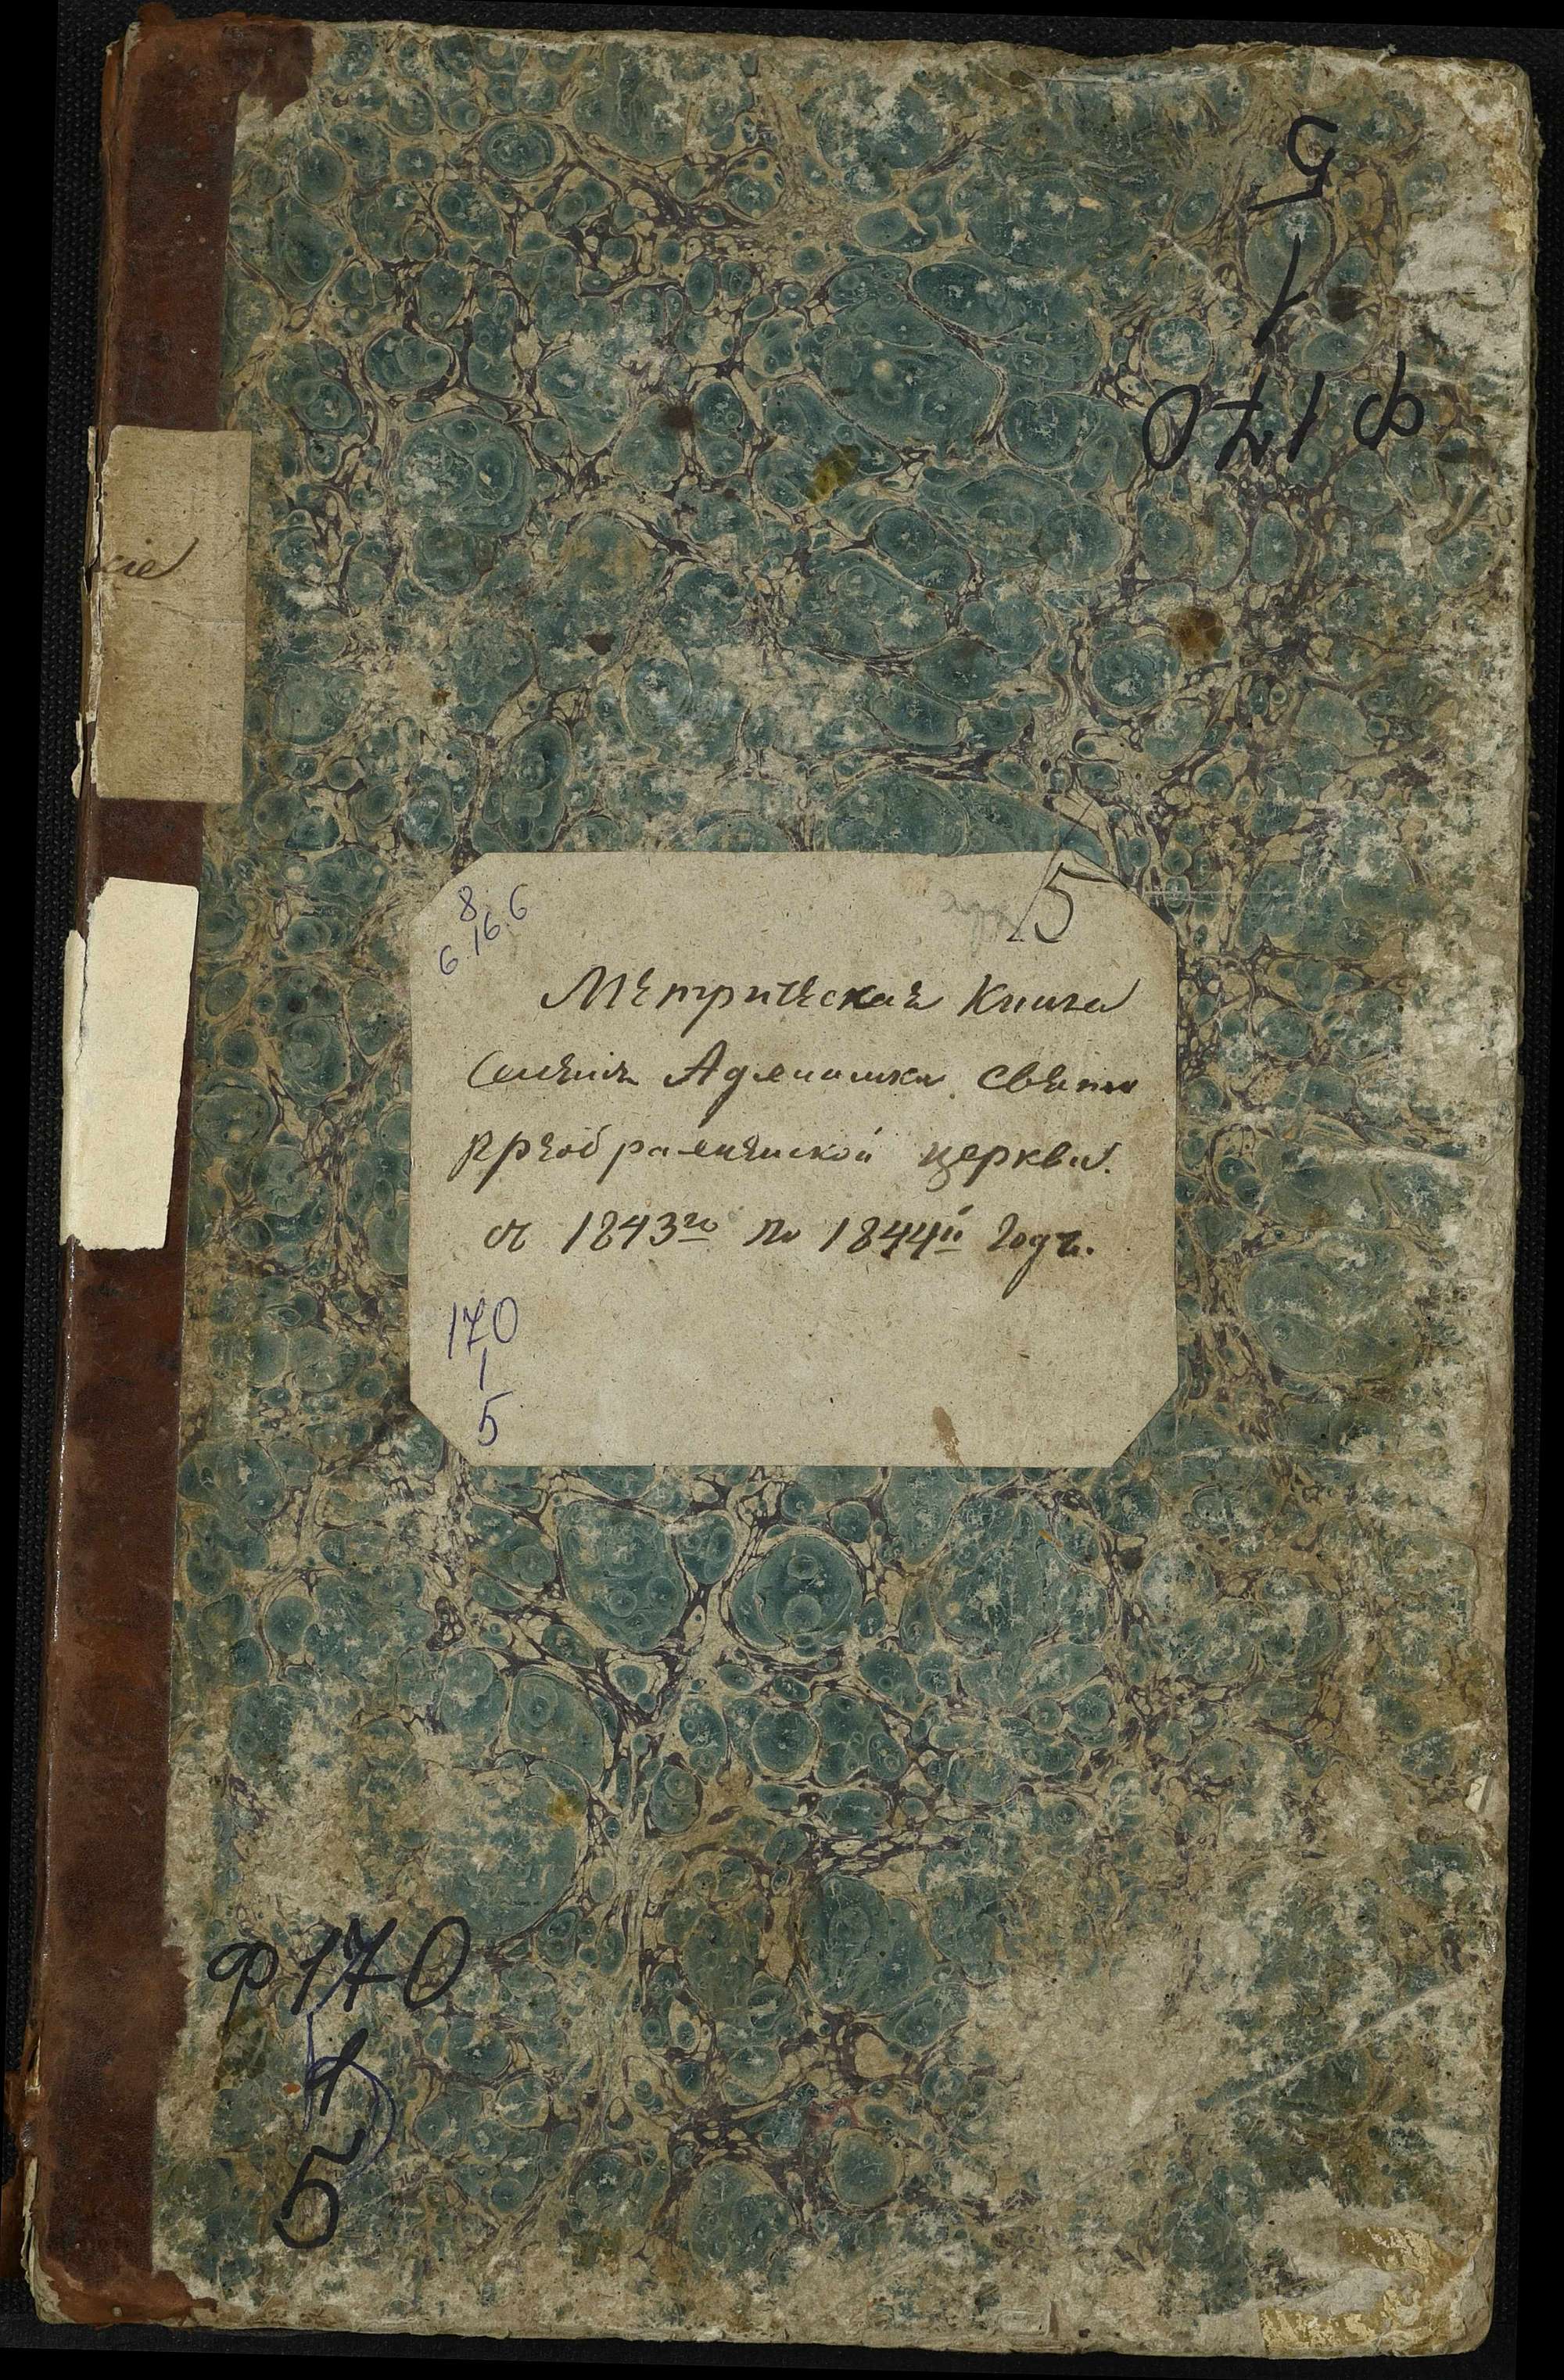 5
1
Ф 170
кіе
8. 6
6.16.
5
Метрическая Книга
Селенія Аджамка Свято
Преображенской церкви.
съ 1843го по 1844й Годъ.
170
1
5
Ф 170
1
5